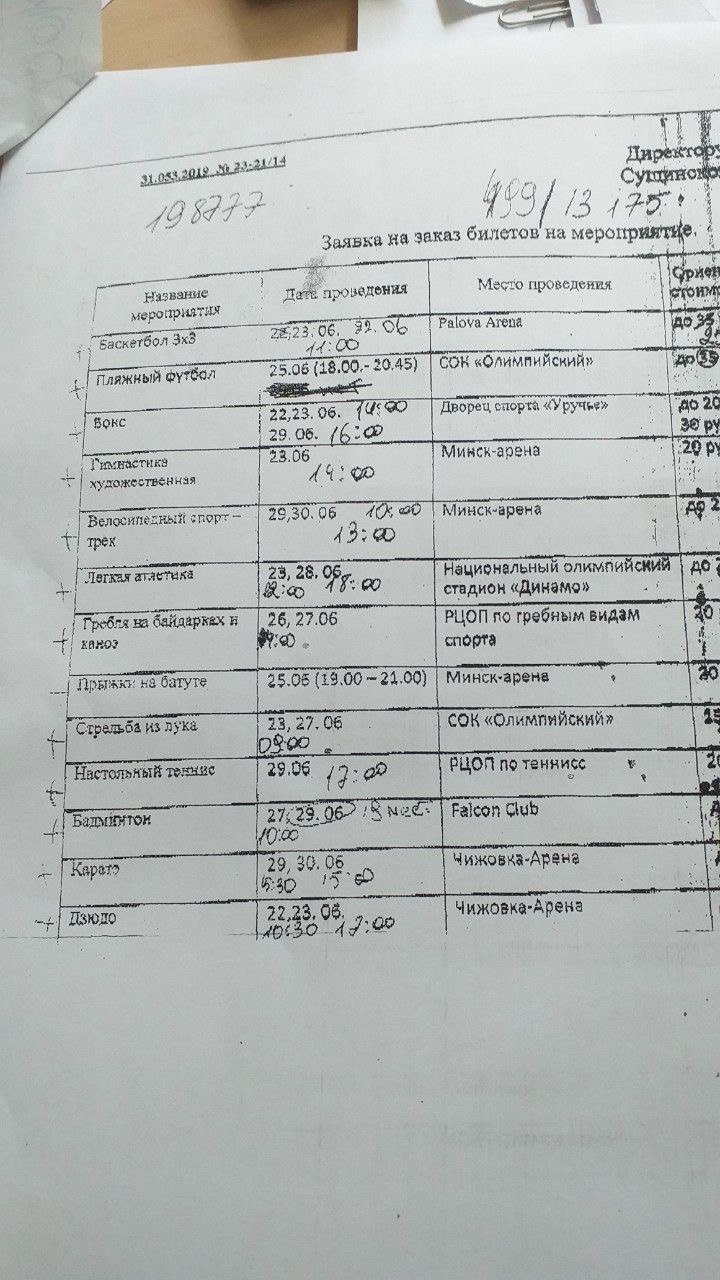 31.053.2019 № 23-21/14
Директору
198777
499/13 175
Заявка на заказ билетов на мероприятие.
Название мероприятия
Дата проведения
Место проведения
Баскетбол 3х3
22,23.06.
11:00
Palova Arena
до 35
Пляжный футбол
25.06 (18.00.- 20.45)
СОК «Олимпийский»
до 35
Бокс
22,23.06. 14:00
29.06. 16:00
Дворец спорта «Уручье»
до 20
30 ру
Гимнастика
художественная
23.06
14:00
Минск-арена
20 ру
Велосипедный спорт –
трек
29,30.06 10:00
13:00
Минск-арена
до 2
Легкая атлетика
23, 28.06.
18:00
Национальный олимпийский
стадион «Динамо»
до
Гребля на байдарках и
каноэ
26, 27.06
РЦОП по гребным видам
спорта
20
Прыжки на батуте
25.06 (19.00 – 21.00)
Минск-арена
20
Стрельба из лука
23, 27.06
09:00
СОК «Олимпийский»
Настольный теннис
29.06 17:00
РЦОП по теннисс
Бадминтон
27, 29.06
10:00
Falcon Club
Каратэ
29, 30.06
Чижовка-Арена
Дзюдо
22,23.06.
10:30 17:00
Чижовка-Арена